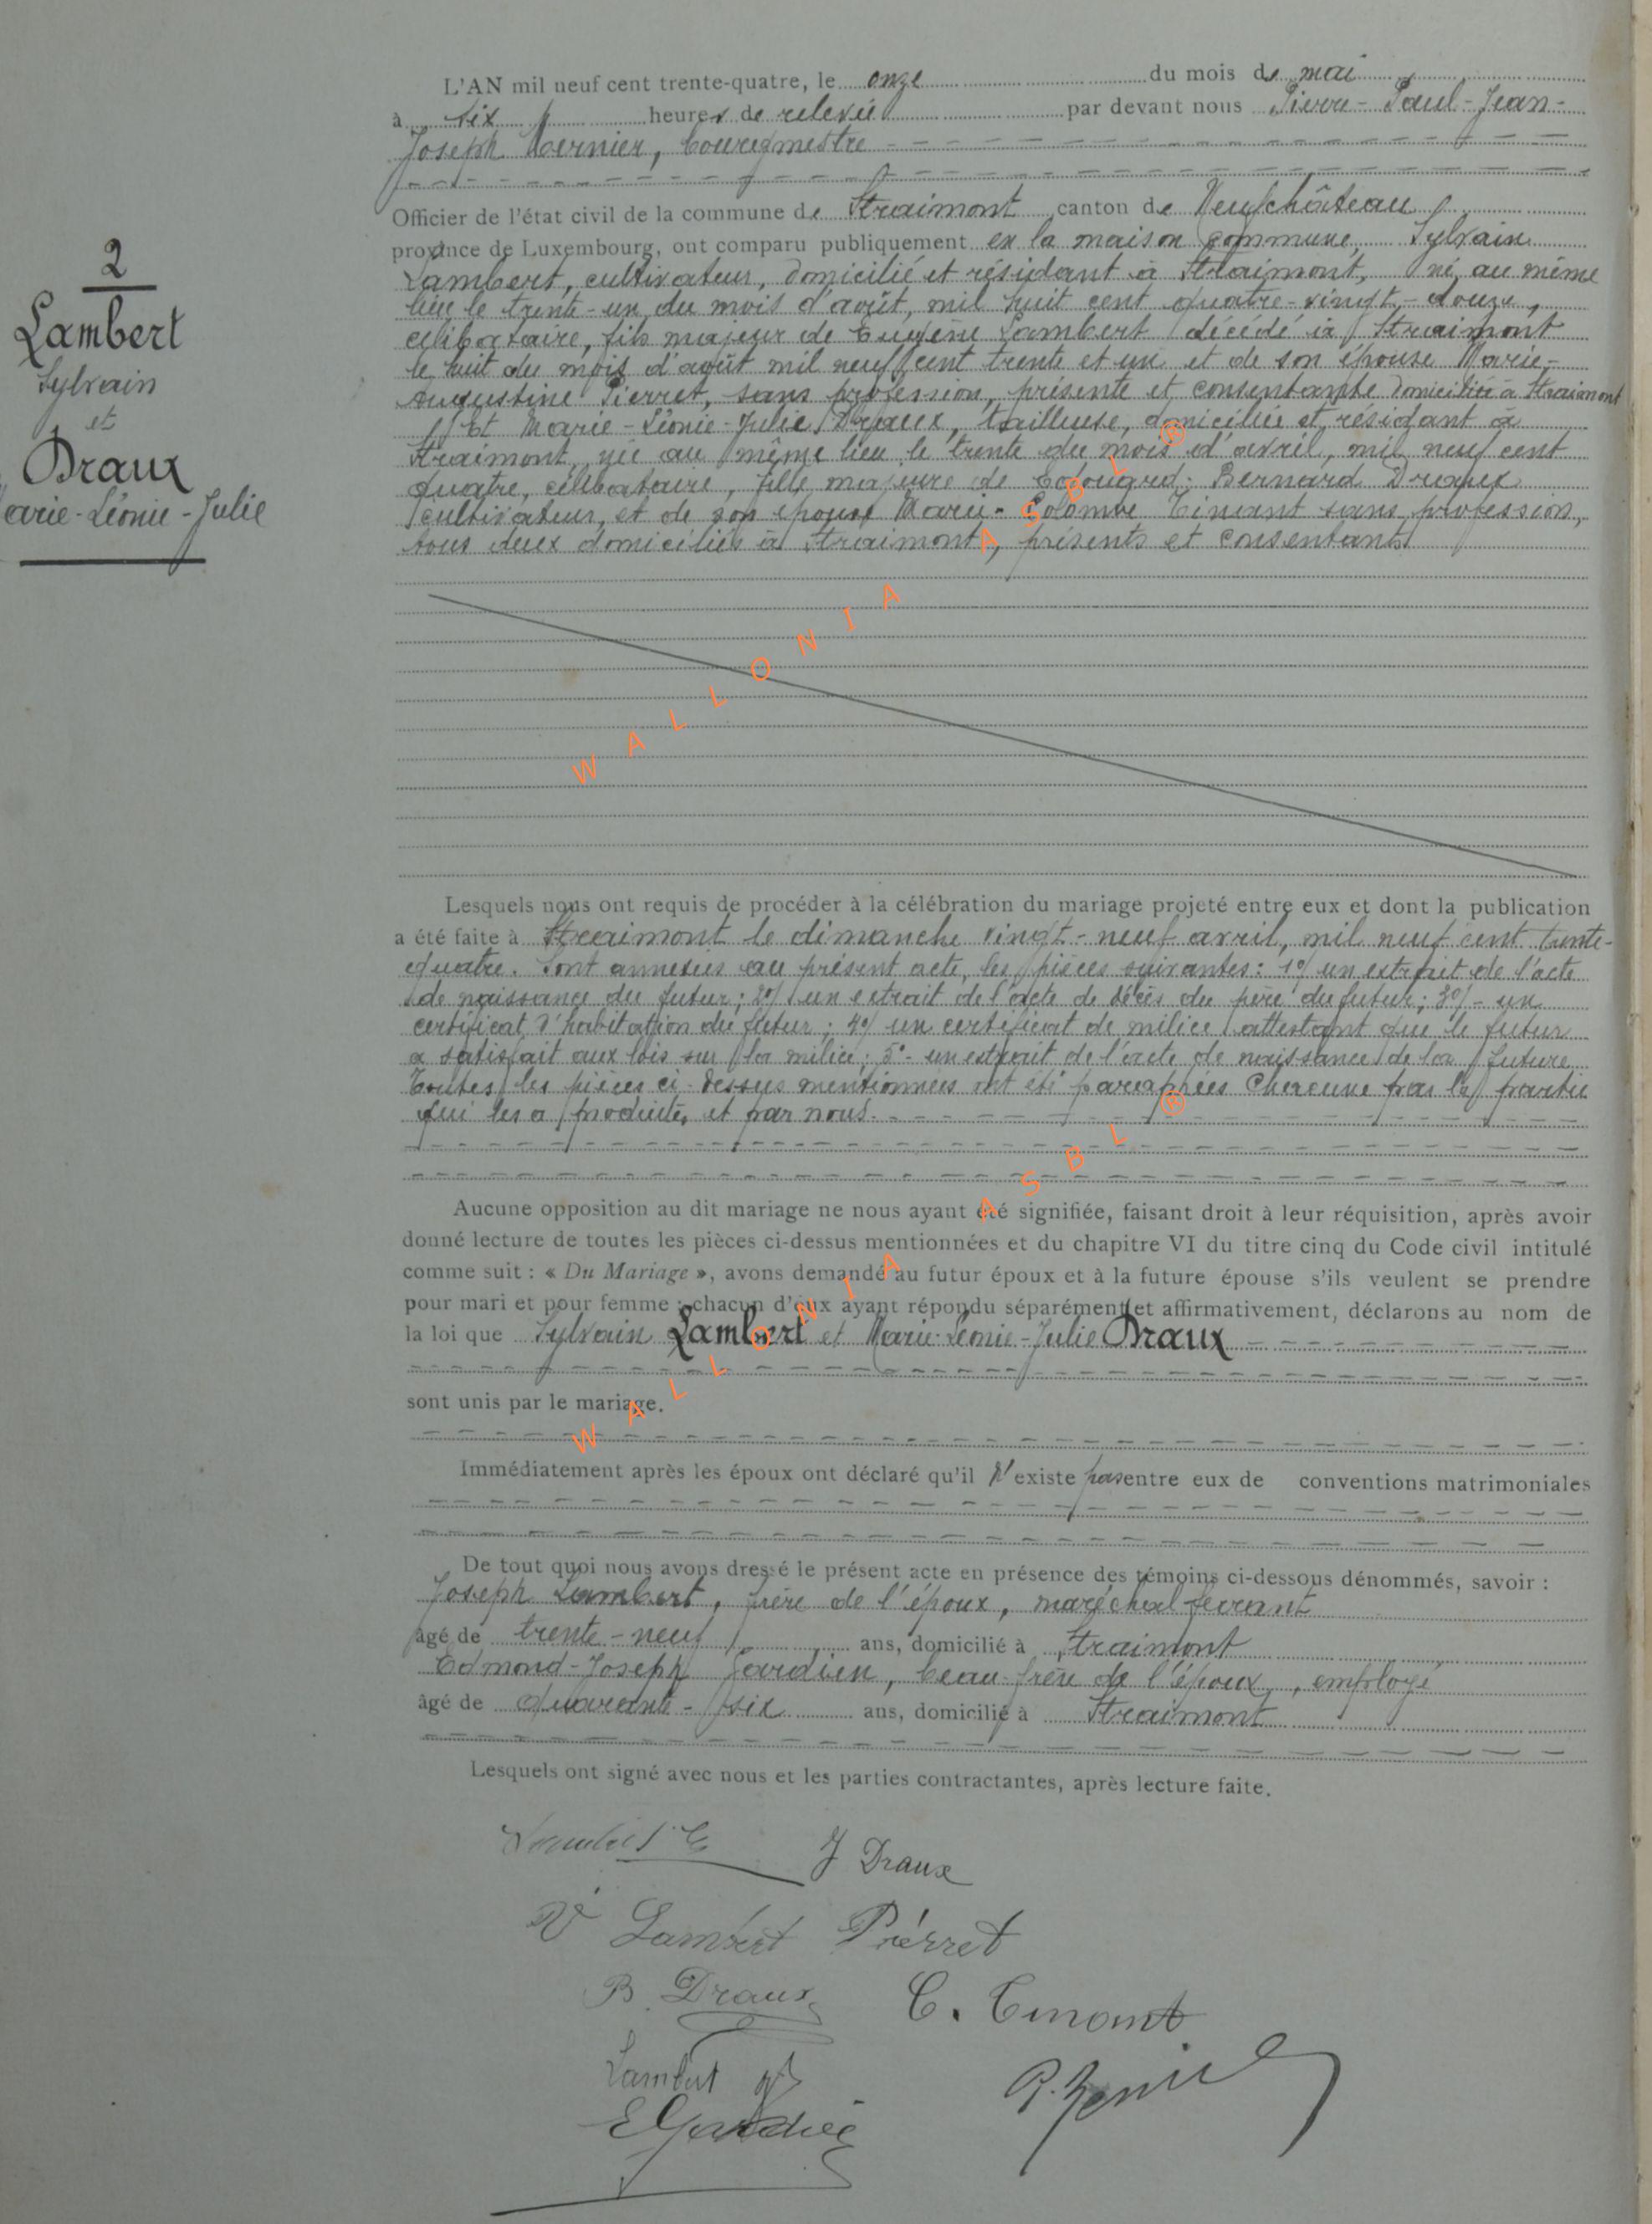 2
Lambert
Sylvain
et
Draux
arie-Léonie-Julie
L'AN mil neuf cent trente-quatre, le onze du mois de mai
à six heures de relevée par devant nous Pierre-Paul-Jean-
Joseph Bourgmestre
Officier de l'état civil de la commune de Straimont canton de Neufchâteau
province de Luxembourg, ont comparu publiquement en la maison commune, Sylvain
Lambert, cultivateur, domicilié et résidant à Straimont, né au même
lieu le trente-un du mois d'août, mil huit cent quatre-vingt-douze,
célibataire, fils majeur de Eugène Lambert décédé à Straimont
le huit du mois d'août mil neuf cent trente et un et de son épouse Marie-
Augustine Pierret, sans profession, présente et consentante domiciliée à Straimont
Et Marie-Léonie-Julie Draux, tailleuse, domiciliée et résidant à
Straimont, née au même lieu le trente du mois d'avril, mil neuf cent
quatre, célibataire, fille majeure de Edouard-Bernard Draux
cultivateur, et de son épouse Marie-Colombe Tinant sans profession,
tous deux domiciliés à Straimont, présents et consentants
Lesquels nous ont requis de procéder à la célébration du mariage projeté entre eux et dont la publication
a été faite à Straimont le dimanche vingt-neuf avril, mil neuf cent trente-
quatre. Sont annexées au présent acte, les pièces suivantes: 1°/ un extrait de l'acte
de naissance du futur; 2°/ un extrait de l'acte de décès du père du futur; 3°/- un
certificat d'habitation du futur; 4°/ un certificat de milice attestant que le futur
a satisfait aux lois sur la milice; 5°- un extrait de l'acte de naissance de la future
Toutes les pièces ci-dessus mentionnées ont été paraphées chacune par la partie
qui les a produites, et par nous.
Aucune opposition au dit mariage ne nous ayant été signifiée, faisant droit à leur réquisition, après avoir
donné lecture de toutes les pièces ci-dessus mentionnées et du chapitre VI du titre cinq du Code civil intitulé
comme suit : « Du Mariage », avons demandé au futur époux et à la future épouse s'ils veulent se prendre
pour mari et pour femme ; chacun d'eux ayant répondu séparément et affirmativement, déclarons au nom de
la loi que Sylvain Lambert et Marie-Léonie-Julie Draux
sont unis par le mariage.
Immédiatement après les époux ont déclaré qu'il n'existe pas entre eux de conventions matrimoniales
De tout quoi nous avons dressé le présent acte en présence des témoins ci-dessous dénommés, savoir :
Joseph Lambert, frère de l'époux, maréchal ferrant
âgé de trente-neuf ans, domicilié à Straimont
Edmond-Joseph Gardien, beau-frère de l'époux, employé
âgé de quarante-six ans, domicilié à Straimont
Lesquels ont signé avec nous et les parties contractantes, après lecture faite.
J Draux
Vᵉ Lambert Pierret
B. Draux C. Tinant
Lambert
E Gardien
WALLONIA ASBL ®
WALLONIA ASBL ®